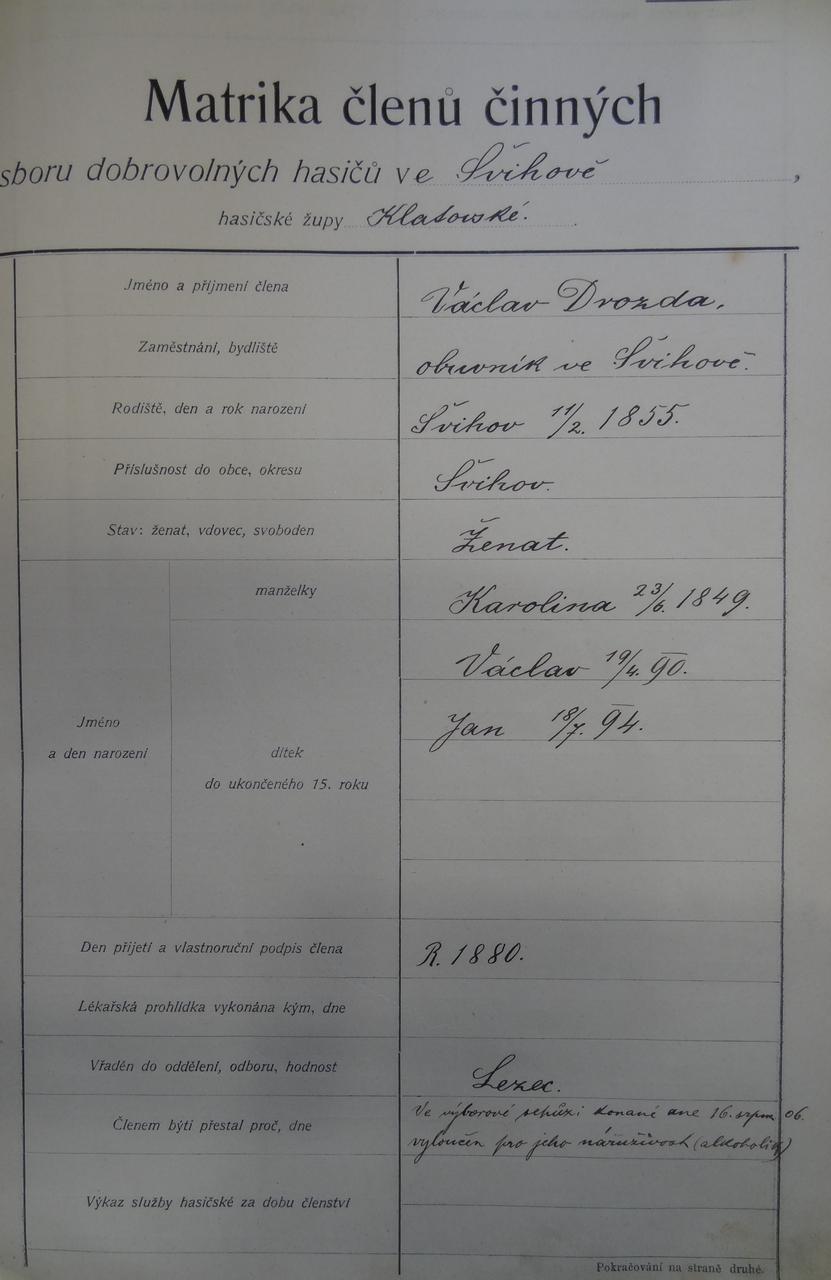 Matrika členů činných
sboru dobrovolných hasičů ve Švihově,
hasičské župy Klatovské.
Jméno a příjmení člena Václav Drozda.
Zaměstnání, bydliště obuvník ve Švihově.
Rodiště, den a rok narození Švihov 11/2. 1855.
Příslušnost do obce, okresu Švihov.
Stav: ženat, vdovec, svoboden Ženat.
manželky Karolina 23/6. 1849.
Václav 19/4. 90.
Jméno Jan 18/7. 94.
a den narození dítek
do ukončeného 15. roku
Den přijetí a vlastnoruční podpis člena R. 1880.
Lékařská prohlídka vykonána kým, dne
Vřaděn do oddělení, odboru, hodnost Lezec.
Ve výborové schůzi konané dne 16. srpna 06.
Členem býti přestal proč, dne
vyloučen pro jeho náruživost
Výkaz služby hasičské za dobu členství
Pokračování na straně druhé.